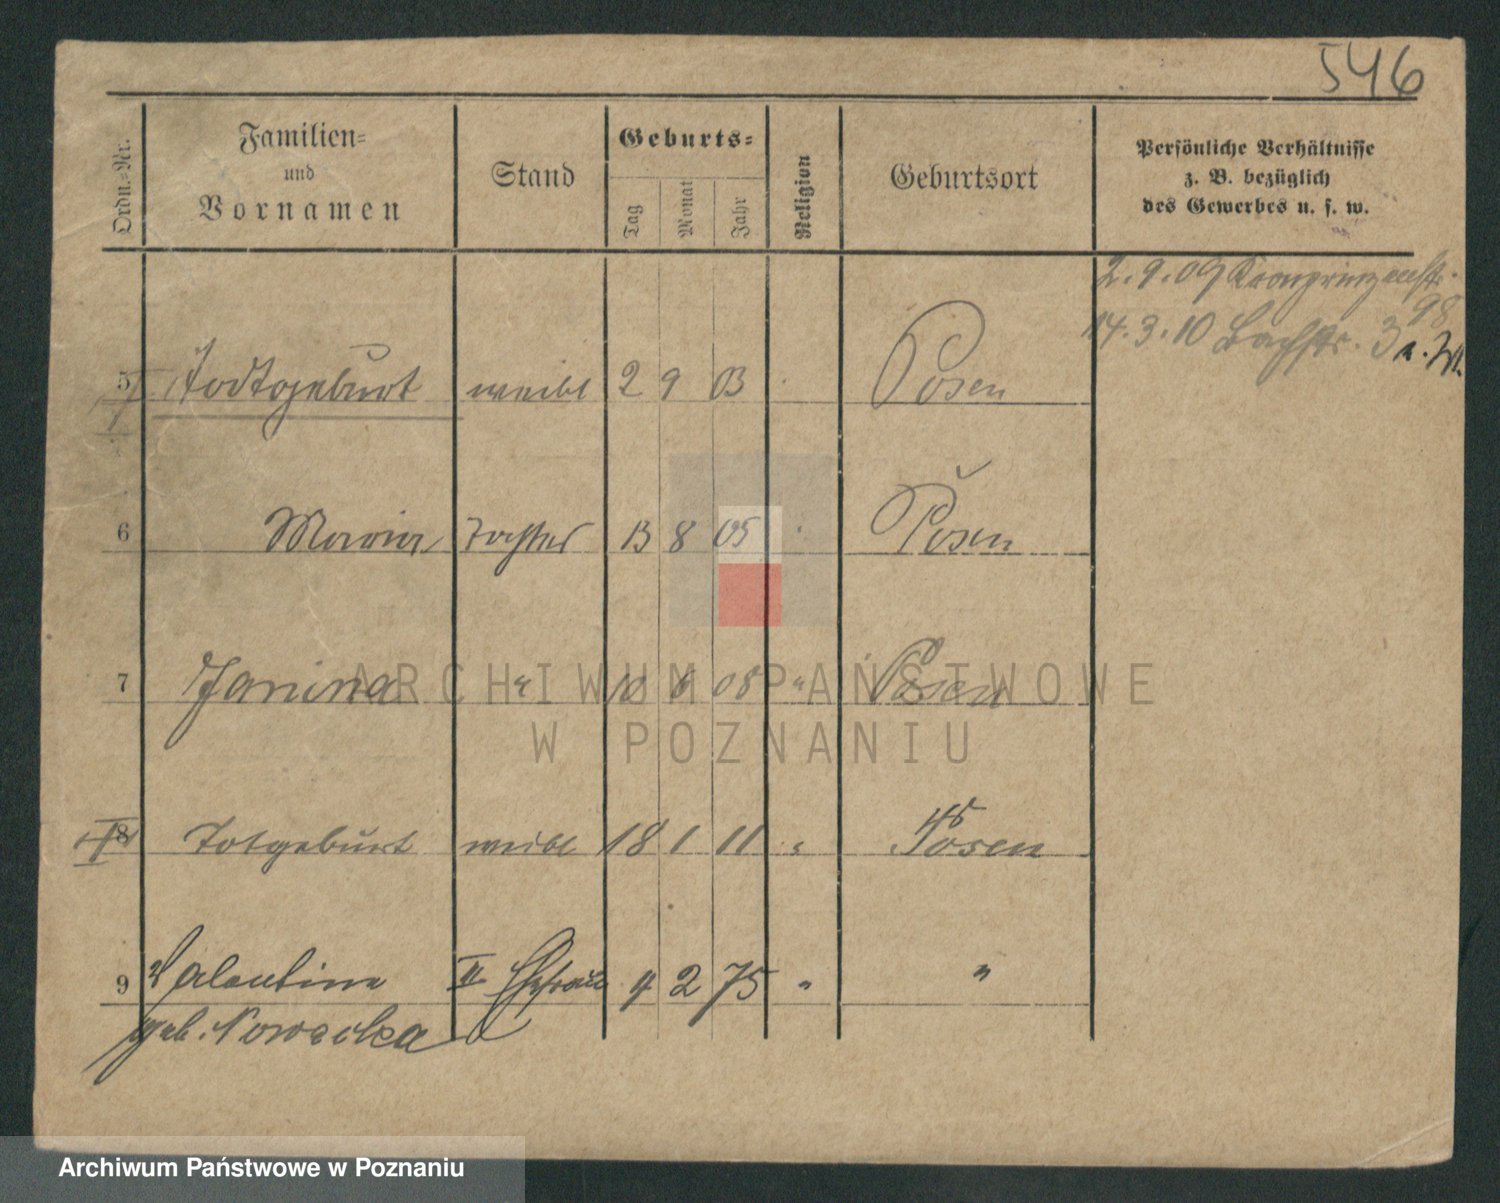 546
Ordn.-Nr.
Familien-
und
Vornamen
Stand
Geburts-
Tag
Monat
Jahr
Religion
Geburtsort
Persönliche Verhältnisse
z. B. bezüglich
des Gewerbes u. s. w.
2.9.09 Kronprinzenstr.
98
14.3.10 Bachstr. 3
5 Todtgeburt weibl 2 9 03 Posen
6 Maria Tochter 13 8 05 Posen
7 Janina " 10 6 08 " Posen
8 Totgeburt weibl 18 1 11 " Posen
9 Valentine II Ehefrau 4 2 75 " "
geb. Nowicka
ARCHIWUM PAŃSTWOWE
W POZNANIU
Archiwum Państwowe w Poznaniu